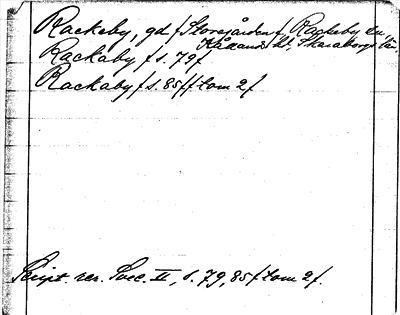 Rackeby, gd (Storegården), Rackeby sn,
Kållands hd, Skaraborgs län
Rackaby, s. 79f
Rackaby, s. 85ff tom 2f
Script. rer. Svec. II, s. 79, 85f tom 2f.